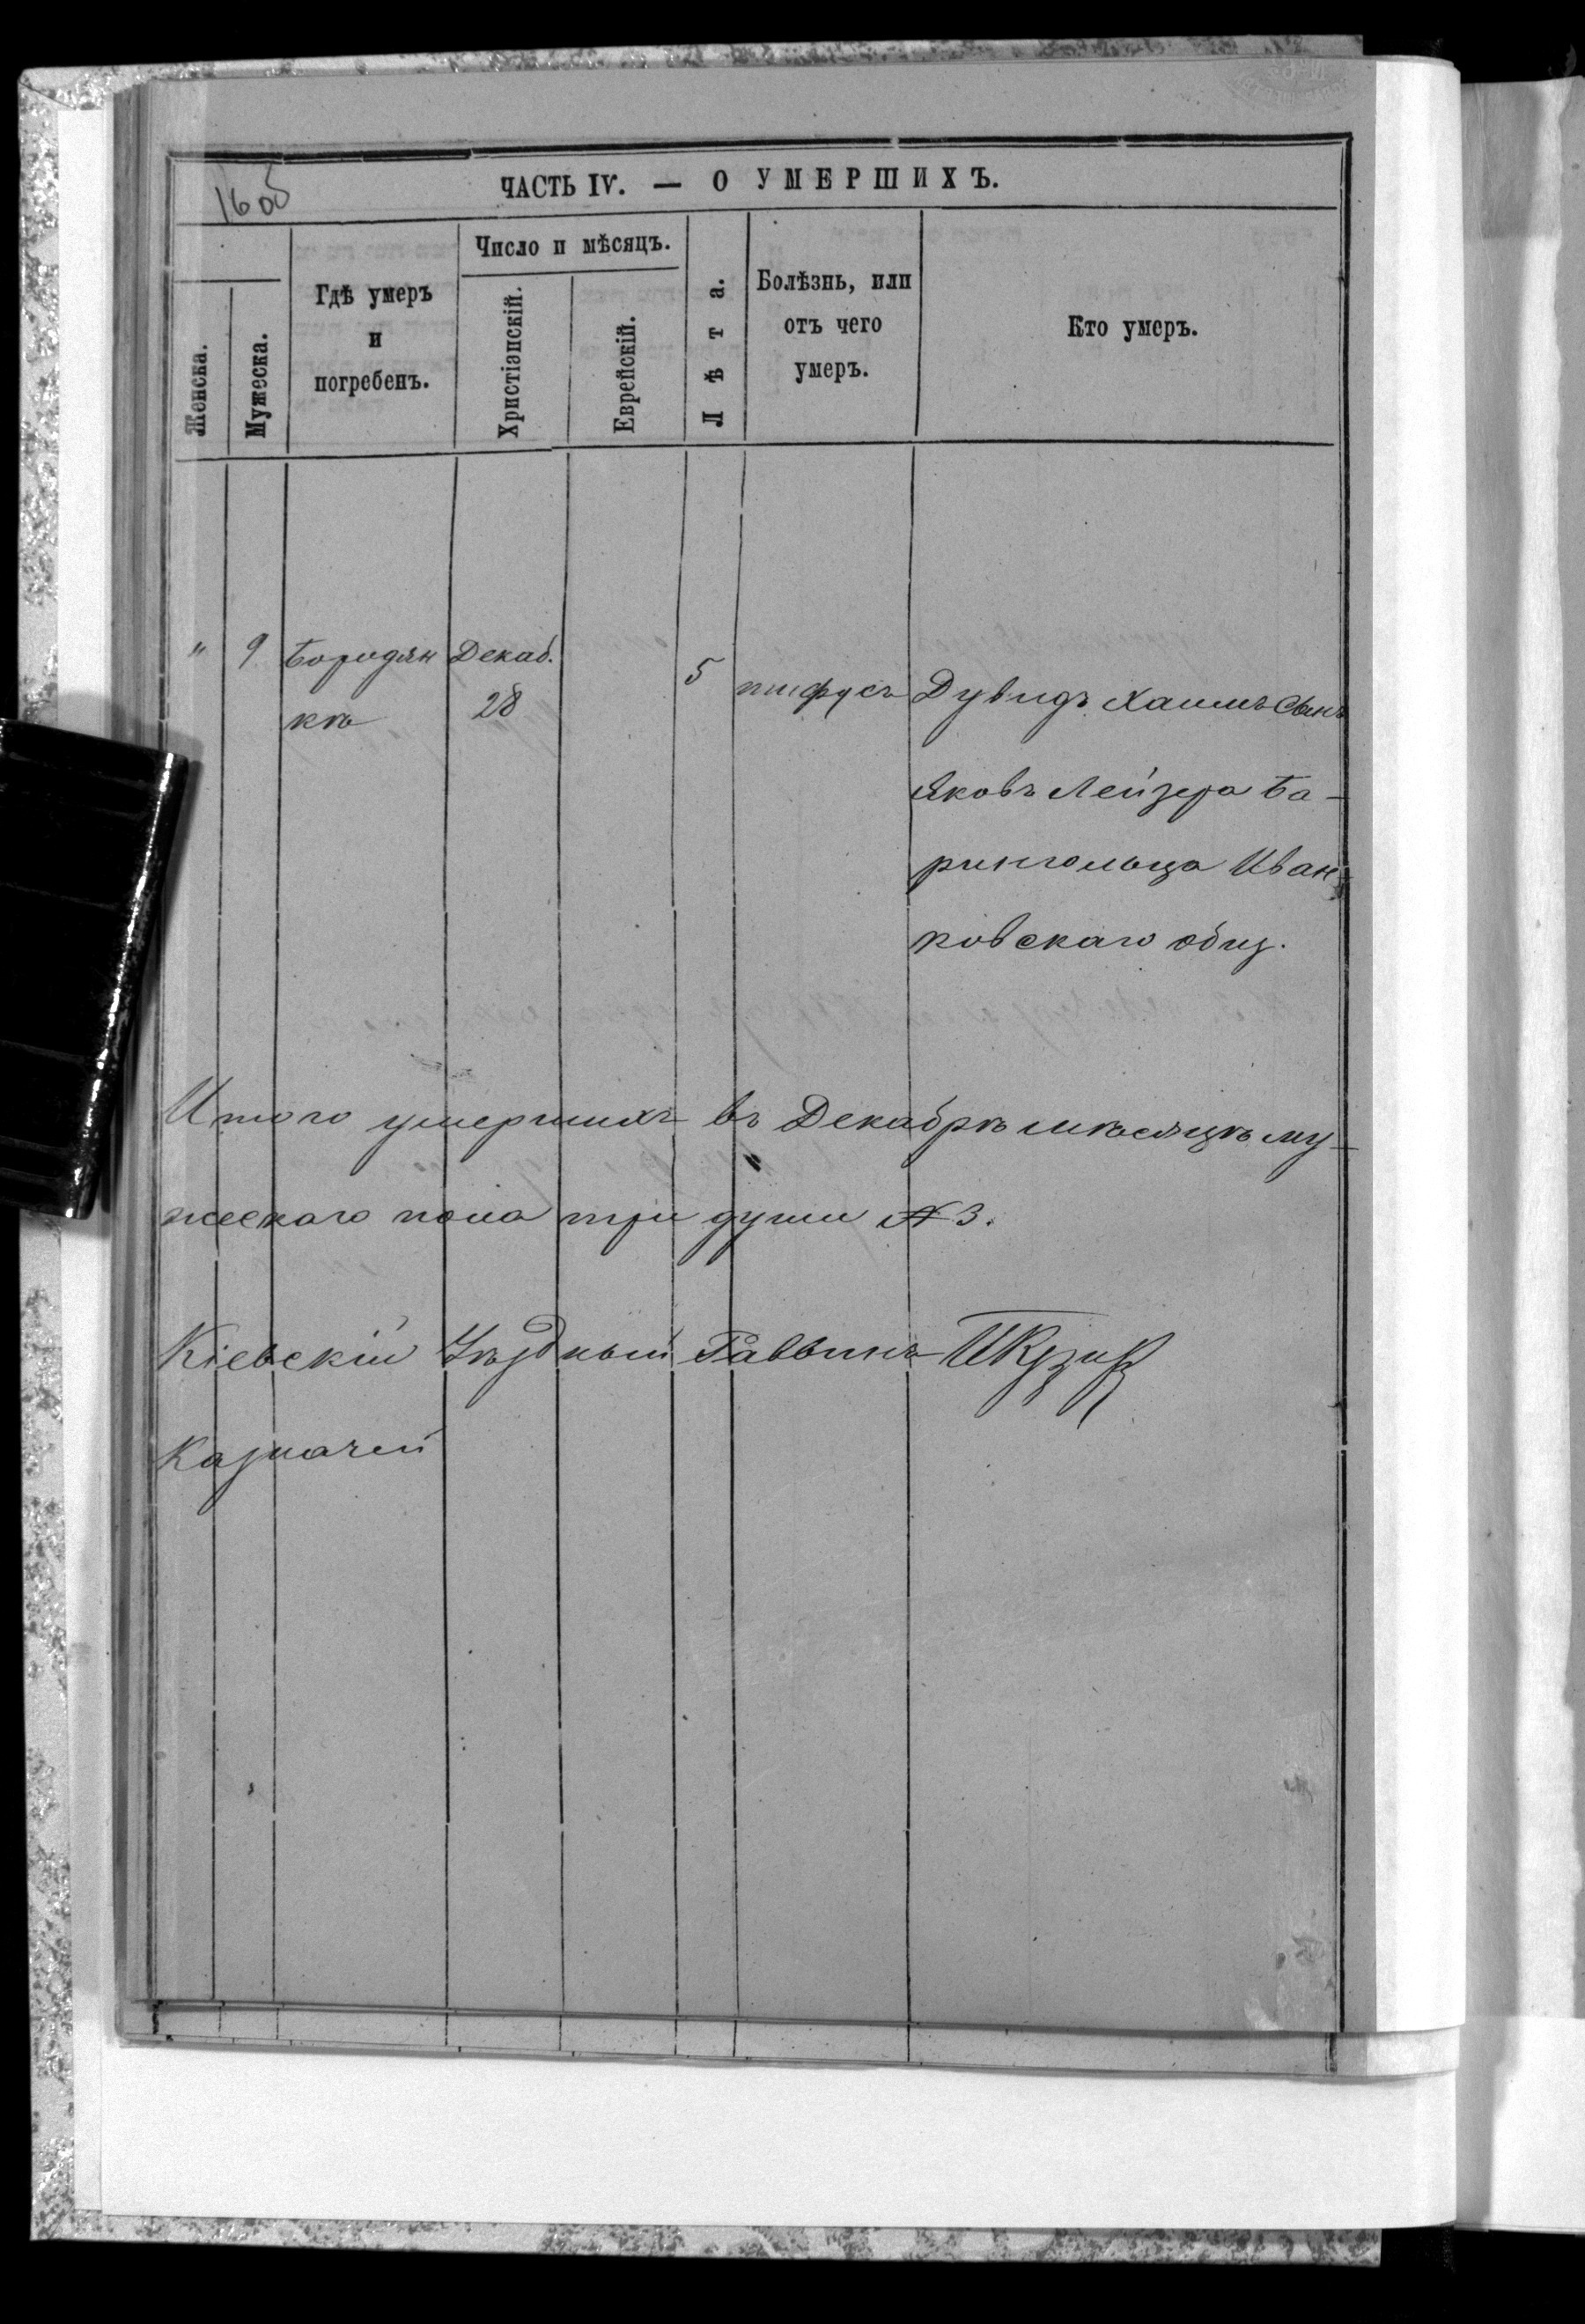 16 об
ЧАСТЬ IV. — О УМЕРШИХЪ.
Женска.
Мужеска.
Гдѣ умеръ
и
погребенъ.
Число и мѣсяцъ.
Христіанскій.
Еврейскій.
Лѣта.
Болѣзнь, или
отъ чего
умеръ.
Кто умеръ.
" 9 Бородян Декаб. 5 тифусъ Дувидъ Хаимъ Сынъ
кѣ 28
Яковъ Лейзера Ба-
рингольца Иван-
ковскаго общ.
Итого умершихъ въ Декабрѣ мѣсяцѣ му-
жескаго пола три души № 3.
Кіевскій Уѣздный Раввинъ
Казначей